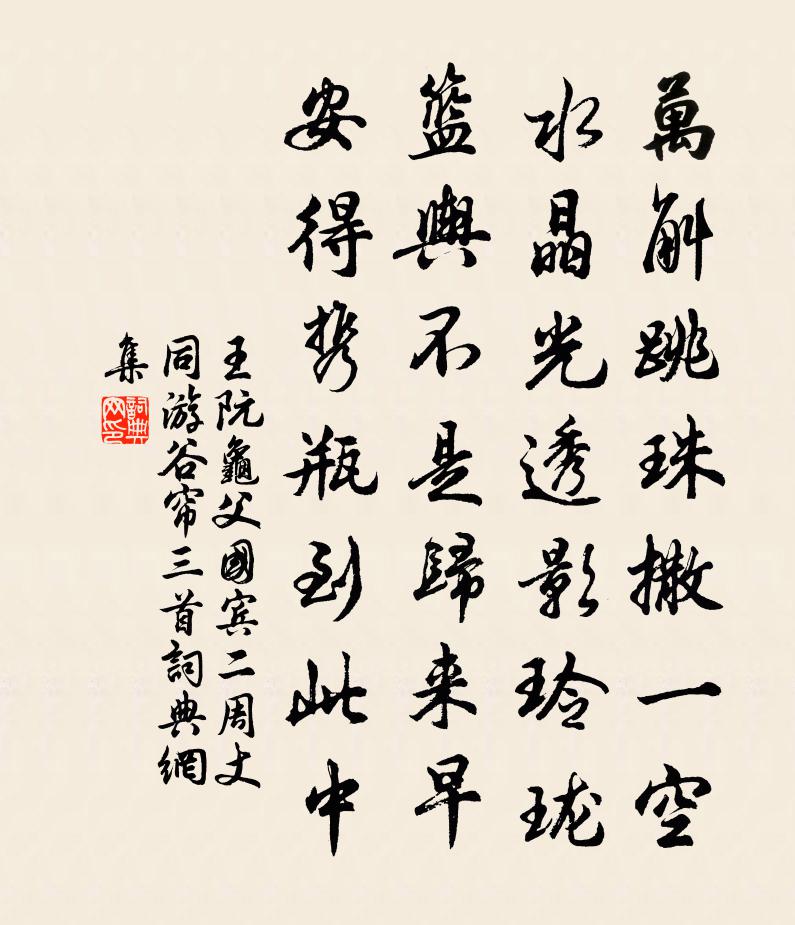 萬斛跳珠撒一空
水晶光透影玲珑
籃輿不是歸来早
安得携瓶到此中
王阮龜父國宾二周丈
同游谷帘三首詞典網
集
詞典網印